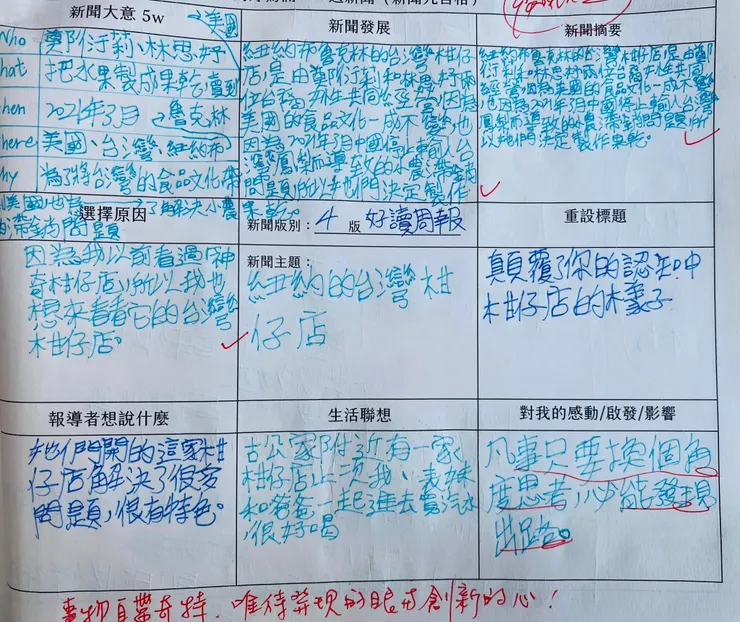 新聞大意 5w
→美國
新聞發展
新聞摘要
Who
莫階衍莉、林思妤
hat
把水果製成果乾賣到
hen
2021年3月→魯克林
here
美國、台灣、紐約布
hy
為了將台灣的食品文化帶
了解決小農
滯銷問題
紐約布魯克林的台灣柑仔
店是由
衍莉和林思妤兩
位台裔女性共同經營,因為
美國的食品文化一成不變,也
因為2021年3月中國停止輸入台
灣鳳梨而導致的農滯銷
問題,所以她們決定製作
果乾。
紐約布魯克林的台灣柑仔店是由
衍莉和林思妤兩位台裔女性共同
經營,因為美國的食品文化一成不變
也因為2021年3月中國停止輸入台灣
鳳梨而導致的農滯銷問題,所
以她們決定製作果乾。
選擇原因
新聞版別:4 版 好讀周報
重設標題
因為我以前看過神
奇柑仔店,所以我也
想來看看它的台灣
柑仔店。
新聞主題:
紐約的台灣柑
仔店
顛覆了你的認知中
柑仔店的樣子
報導者想說什麼
生活聯想
對我的感動/啟發/影響
她們開的這家柑
仔店解決了很多
問題,很有特色。
古公家附近有一家
柑仔店上次我、表妹
和爸爸一起進去買汽水
,很好喝
凡事只要換個角
度思考,必能發現
出路。
事物自帶奇特,唯待發現的眼與創新的心!